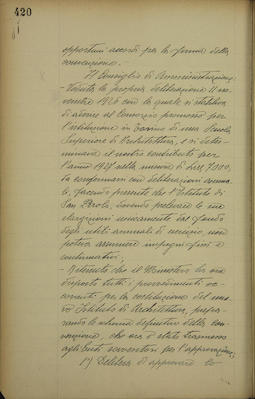 420
opportuni accordi per la firma della
convenzione.-
Il Consiglio di Amministrazione,
- Veduta la propria deliberazione 11 no
vembre 1926 con la quale si stabiliva
di aderire al Consorzio promosso per
l'istituzione in Torino di una Scuola
Superiore di Architettura, e si deter-
minava il nostro contributo per
l'anno 1927 nella misura di Lire 7500,
da confermarsi con deliberazioni annua
li, facendo presente che l'Istituto di
San Paolo, dovendo prelevare le sue
elargizioni unicamente dal fondo
degli utili annuali di esercizio, non
poteva assumere impegni fissi e
continuativi;
- Ritenuto che il Ministero ha ora
disposto tutti i provvedimenti oc-
correnti per la costituzione del nuo
vo Istituto di Architettura, prepa-
rando lo schema definitivo della con
venzione, che ora è stato trasmesso
agli Enti sovventori per l'approvazione;
1°) Delibera di approvare lo